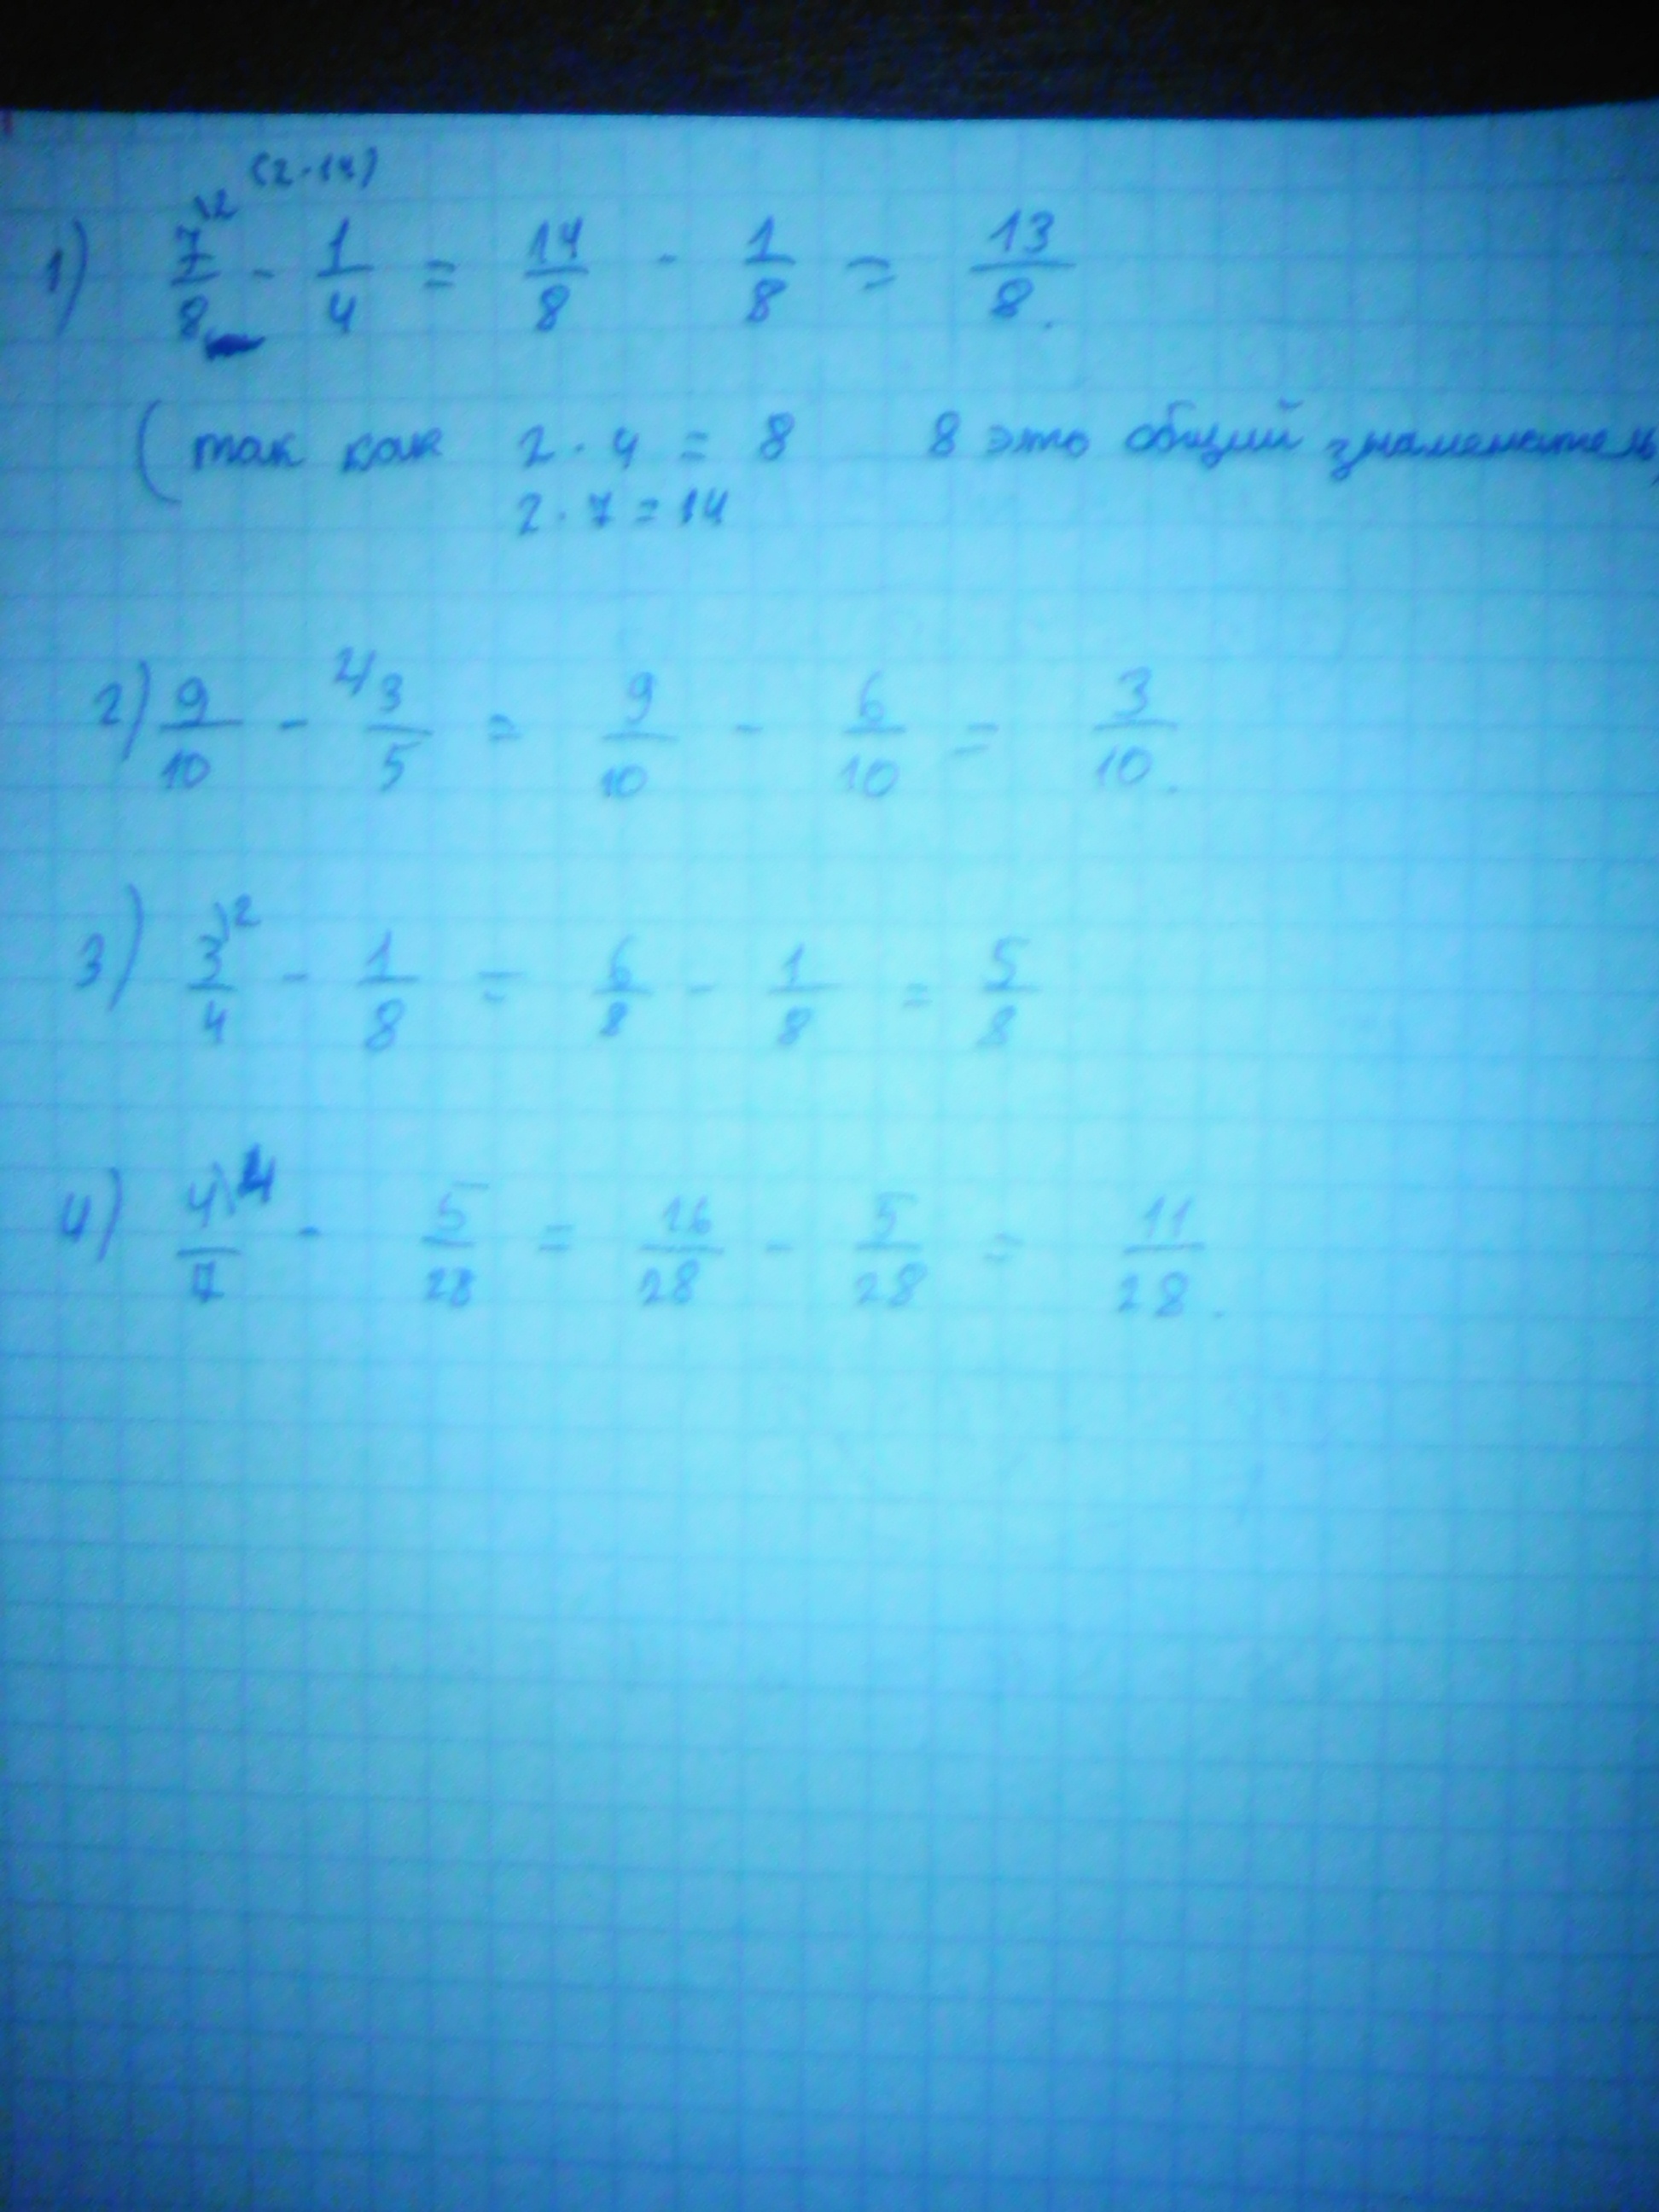 (2·14)
1) 7/8 \2 - 1/4 = 14/8 - 1/8 = 13/8.
(так как 2·4=8 8 это общий знаменатель)
2·7=14
2) 9/10 - 2/3/5 = 9/10 - 6/10 = 3/10.
3) 3/4 \2 - 1/8 = 6/8 - 1/8 = 5/8
4) 4/7 \4 - 5/28 = 16/28 - 5/28 = 11/28.